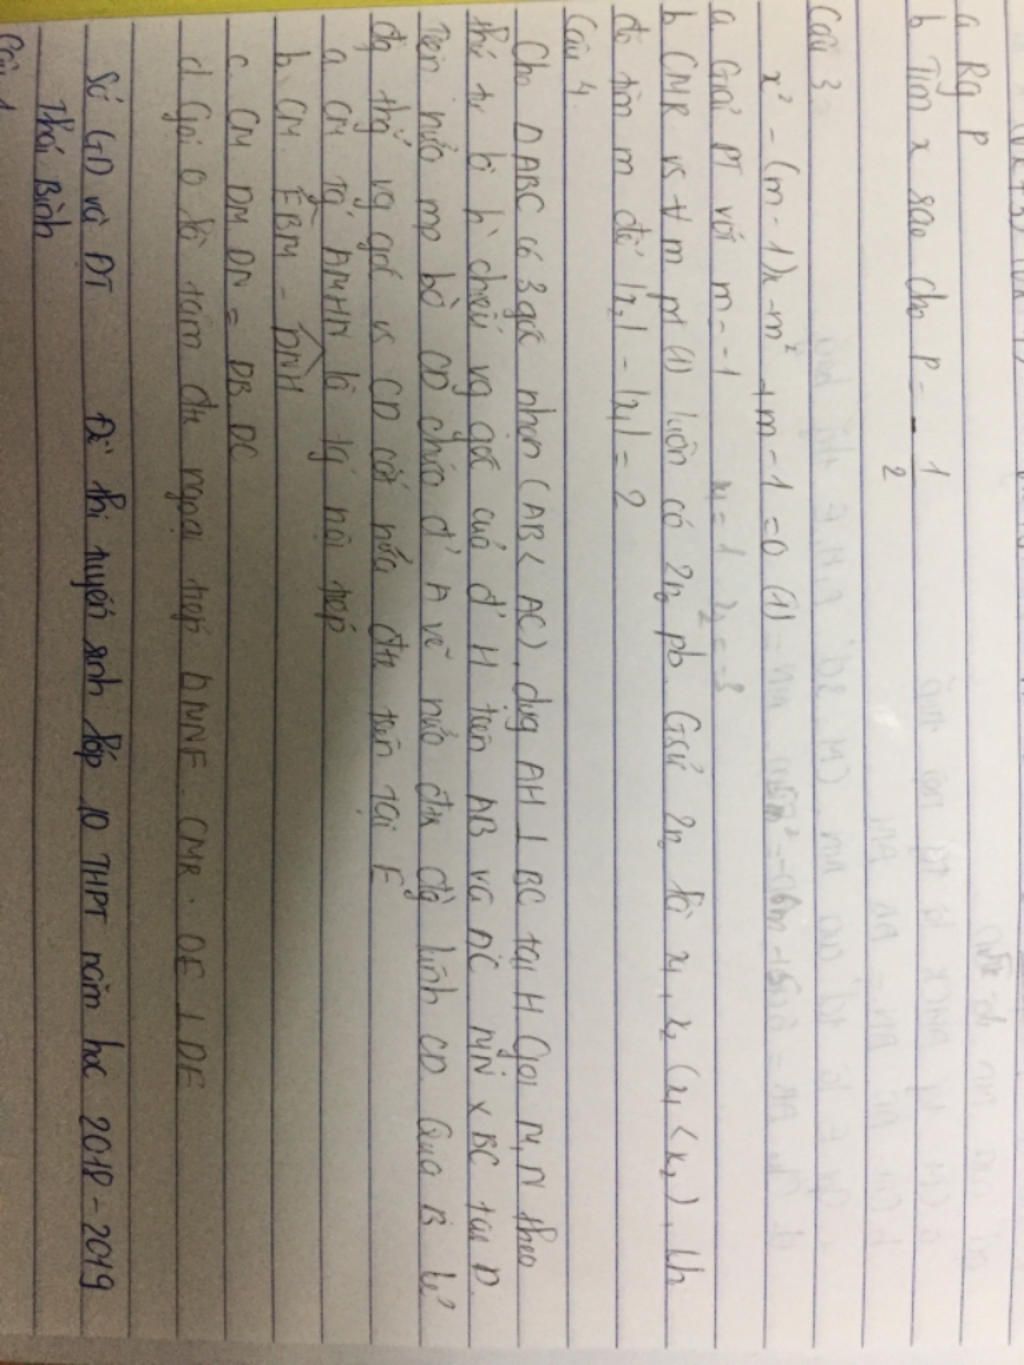 a Rg P
b Tìm x sao cho P = - 1/2
Câu 3
x² - (m-1)x - m² + m - 1 = 0 (1)
a Giải PT với m = -1 x₁ = 1 x₂ = -3
b CMR vs ∀ m pt (1) luôn có 2n₀ pb. Gsử 2n₀ là x₁, x₂ (x₁ < x₂), kh
đó tìm m để |x₂| - |x₁| = 2
Câu 4.
Cho Δ ABC có 3 góc nhọn (AB < AC), dựg AH ⊥ BC tại H Gọi M, N theo
thứ tự là h' chiếu vg góc của đ' H trên AB và AC MN x BC tại D.
Trên nửa mp bờ CD chứa đ' A vẽ nửa đtr đg kính CD. Qua B kẻ
đg thg vg góc vs CD cắt nửa đtr trên tại E
a CM tg AMHN là tg nội tiếp
b. CM. EBM = DNH
c. CM DM.DN = DB.DC
d Gọi O là tâm đtr ngoại tiếp ΔMNE. CMR. OE ⊥ DE
Sở GD và ĐT Đề thi tuyển sinh lớp 10 THPT năm học 2018-2019
Thái Bình
Câu 1